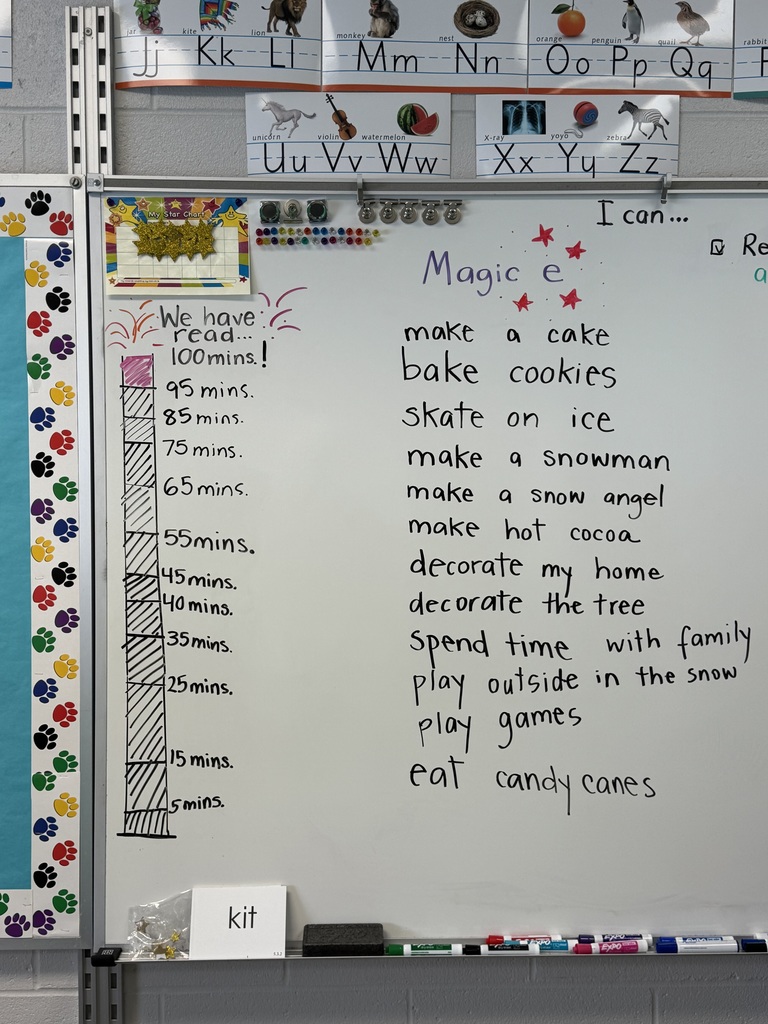 jar kite lion
Jj Kk Ll
monkey nest
Mm Nn
orange penguin quail
Oo Pp Qq
rabbit
unicorn violin watermelon
Uu Vv Ww
X-ray yoyo zebra
Xx Yy Zz
My Star Chart
I can...
Re
a
Magic e
We have
read...
100mins.!
95 mins.
85 mins.
75 mins.
65 mins.
55mins.
45mins.
40mins.
35mins.
25mins.
15 mins.
5mins.
make a cake
bake cookies
skate on ice
make a snowman
make a snow angel
make hot cocoa
decorate my home
decorate the tree
Spend time with family
play outside in the snow
play games
eat candy canes
kit
EXPO
EXPO